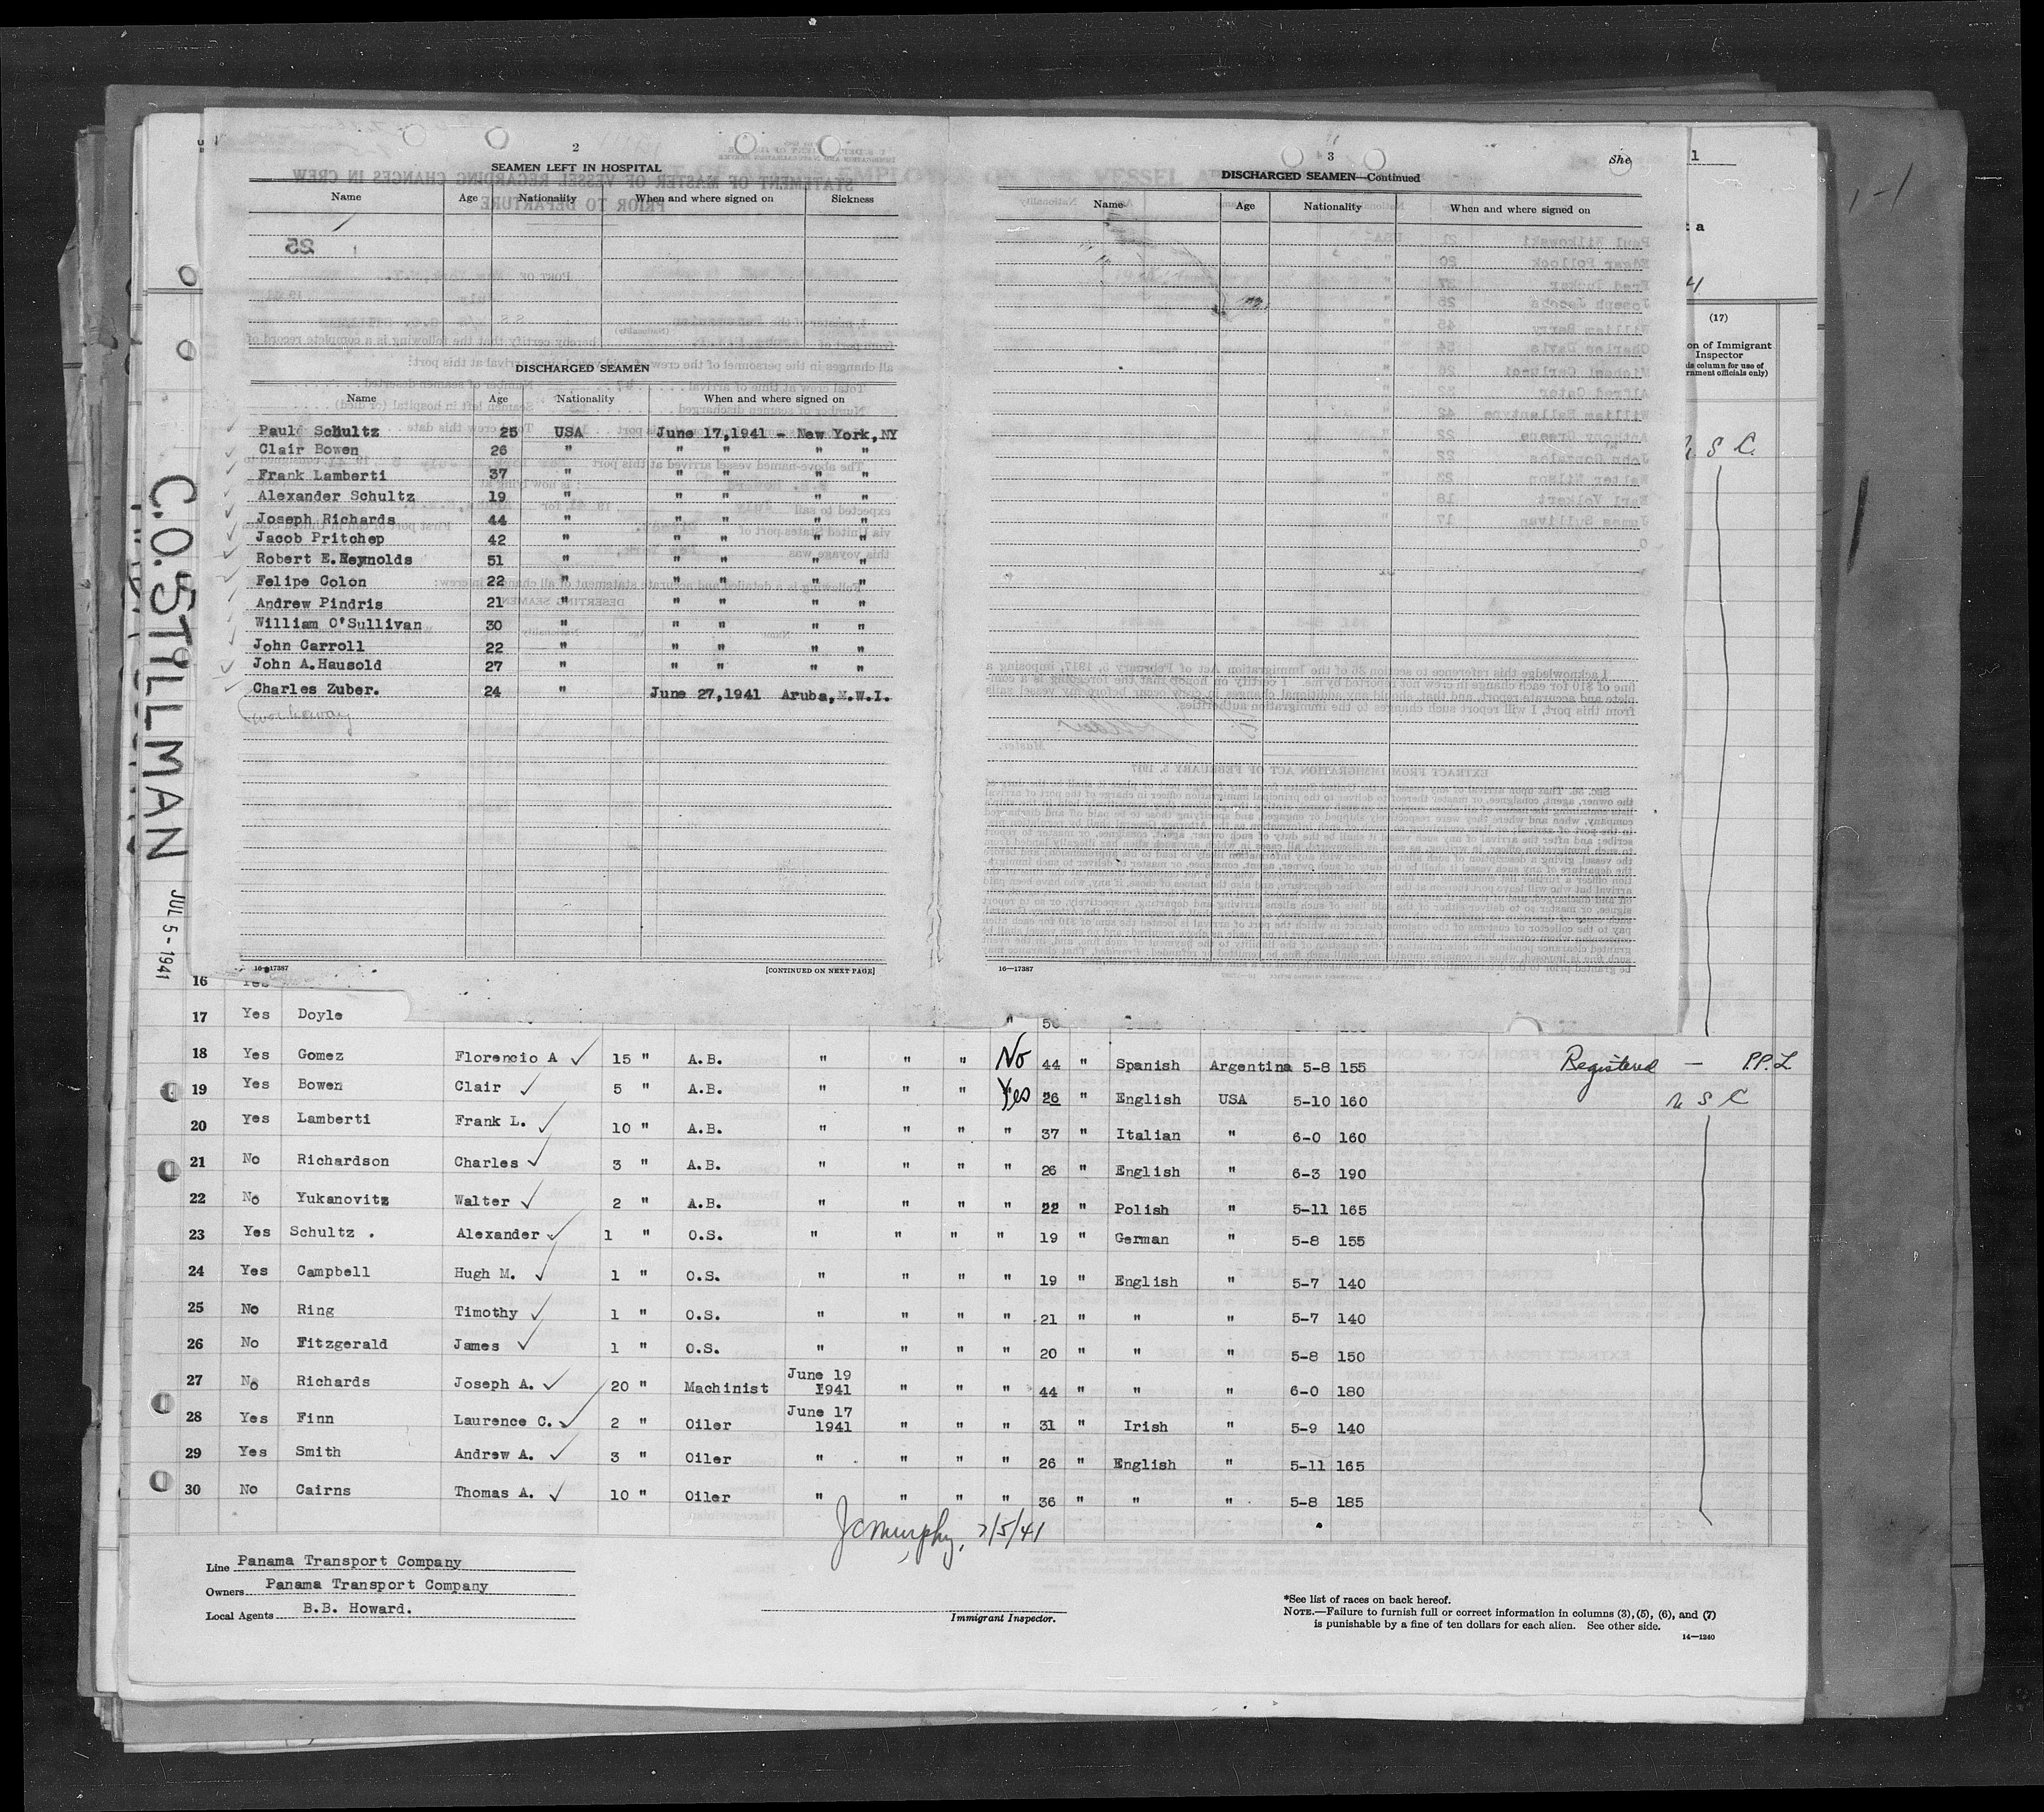 2
SEAMEN LEFT IN HOSPITAL
Name Age Nationality When and where signed on Sickness
DISCHARGED SEAMEN
Name Age Nationality When and where signed on
Paul Schultz 25 USA June 17,1941 - New York,NY
Clair Bowen 26 " " " " "
Frank Lamberti 37 " " " " "
Alexander Schultz 19 " " " " "
Joseph Richards 44 " " " " "
Jacob Pritchep 42 " " " " "
Robert E.Reynolds 51 " " " " "
Felipe Colon 22 " " " " "
Andrew Pindris 21 " " " " "
William O'Sullivan 30 " " " " "
John Carroll 22 " " " " "
John A.Hausold 27 " " " " "
Charles Zuber. 24 " June 27,1941 Aruba,N.W.I.
(workaway
16—17387 [CONTINUED ON NEXT PAGE]
3
She
DISCHARGED SEAMEN—Continued
Name Age Nationality When and where signed on
16—17387
1
(17)
on of Immigrant
Inspector
C.O. STILLMAN
JUL 5 - 1941
16 Yes
17 Yes Doyle "
18 Yes Gomez Florencio A 15 " A.B. " " " No 44 " Spanish Argentina 5-8 155 Registered — P.P.L
19 Yes Bowen Clair 5 " A.B. " " " Yes 26 " English USA 5-10 160 U S C
20 Yes Lamberti Frank L. 10 " A.B. " " " " 37 " Italian " 6-0 160
21 No Richardson Charles 3 " A.B. " " " " 26 " English " 6-3 190
22 No Yukanovitz Walter 2 " A.B. " " " " 22 " Polish " 5-11 165
23 Yes Schultz . Alexander 1 " O.S. " " " " 19 " German " 5-8 155
24 Yes Campbell Hugh M. 1 " O.S. " " " " 19 " English " 5-7 140
25 No Ring Timothy 1 " O.S. " " " " 21 " " " 5-7 140
26 No Fitzgerald James 1 " O.S. " " " " 20 " " " 5-8 150
27 No Richards Joseph A. 20 " Machinist June 19 1941 " " " 44 " " " 6-0 180
28 Yes Finn Laurence C. 2 " Oiler June 17 1941 " " " 31 " Irish " 5-9 140
29 Yes Smith Andrew A. 3 " Oiler " " " " 26 " English " 5-11 165
30 No Cairns Thomas A. 10 " Oiler " " " " 36 " " " 5-8 185
JC Murphy, 7/5/41
Line Panama Transport Company
Owners Panama Transport Company
Local Agents B.B. Howard.
Immigrant Inspector.
*See list of races on back hereof.
NOTE.—Failure to furnish full or correct information in columns (3), (5), (6), and (7)
is punishable by a fine of ten dollars for each alien. See other side.
14—1240